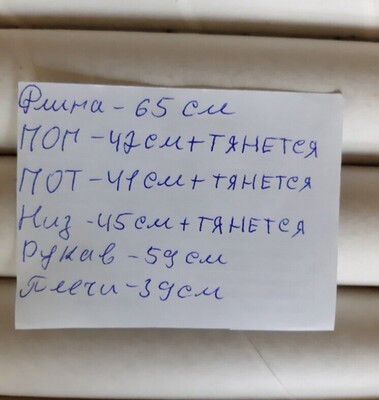 Длина - 65 см
ПОГ - 42 см + тянется
ПОТ - 41 см + тянется
Низ - 45 см + тянется
Рукав - 59 см
Плечи - 39 см